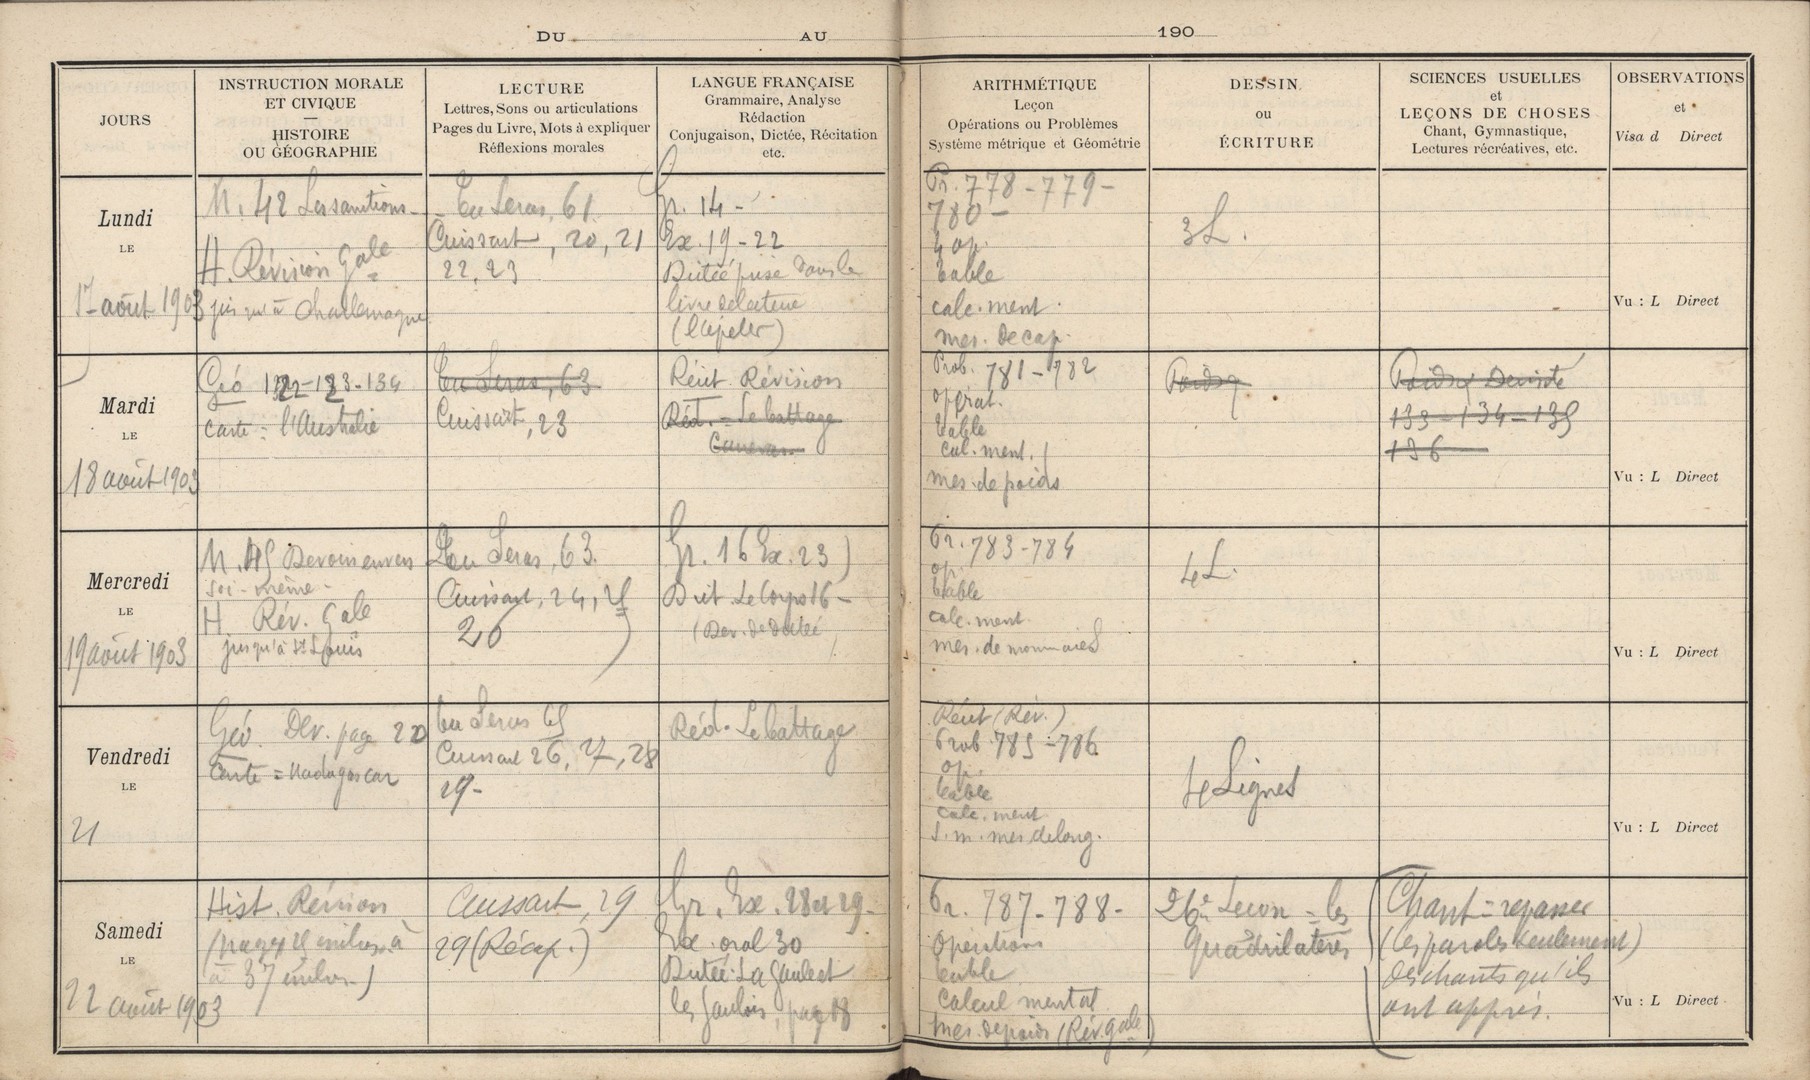 DU AU 190
JOURS
INSTRUCTION MORALE
ET CIVIQUE
—
HISTOIRE
OU GÉOGRAPHIE
LECTURE
Lettres, Sons ou articulations
Pages du Livre, Mots à expliquer
Réflexions morales
LANGUE FRANÇAISE
Grammaire, Analyse
Rédaction
Conjugaison, Dictée, Récitation
etc.
ARITHMÉTIQUE
Leçon
Opérations ou Problèmes
Système métrique et Géométrie
DESSIN
ou
ÉCRITURE
SCIENCES USUELLES
et
LEÇONS DE CHOSES
Chant, Gymnastique,
Lectures récréatives, etc.
OBSERVATIONS
et
Visa d Direct
Lundi
LE
17 août 1903
M. 42 Les sanctions
H. Révision Gale
jusqu'à Charlemagne
Tu Seras, 61
Cuissart, 20, 21
22, 23
Gr. 14 -
Ex. 19-22
Dictée prise dans le
livre de lecture
(l'épeler)
Pr. 778-779-
780-
4 op.
table
calc. ment.
mes. de cap.
3 L.
Vu : L Direct
Mardi
LE
18 août 1903
Géo 134
Carte : l'Australie
Tu Seras, 63
Cuissart, 23
Récit. Révision
Réd. = Le battage
Prob. 781-782
opérat.
table
cal. ment.
mes. de poids
133-134-135
136
Vu : L Direct
Mercredi
LE
19 août 1903
M. 45 Devoirs envers
soi-même -
H Rév. Gale
jusqu'à St Louis
Tu Seras, 63.
Cuissart, 24, 25
26
Gr. 16 Ex. 23)
Dict. Le Corps 16 -
Pr. 783-784
op.
table
calc. ment.
mes. de monnaies
4 L.
Vu : L Direct
Vendredi
LE
21
Géo. Dev. page 20
Carte = Madagascar
Tu Seras 65
Cuissart 26, 27, 28
29-
Réd. Le battage
Récit (Rév.)
Prob. 785-786
op.
table
calc. ment.
S. m. mes de long.
4 Lignes
Vu : L Direct
Samedi
LE
22 août 1903
Hist. Révision
à 37 inclus-)
Cuissart, 29
29 (Récap.)
Gr. Ex. 28 et 29-
Ex. oral 30
Dictée: La Gaule et
les Gaulois, page 18
Pr. 787-788-
Opérations
table
Calcul mental
Mes. de poids (Rév. gale)
26e Leçon = les
quadrilatères
Chant = repasser
(les paroles seulement)
des chants qu'ils
ont appris.
Vu : L Direct